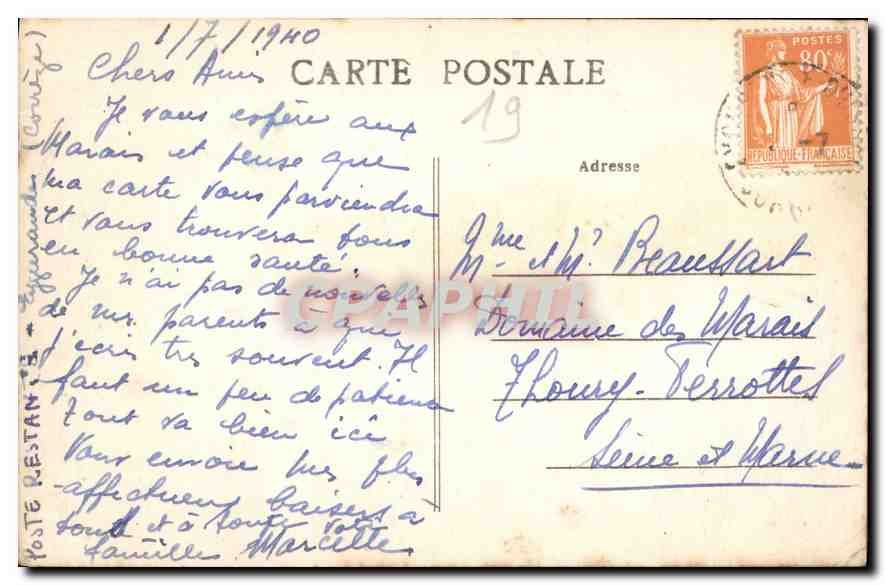 1/7/1940
Chers Amis
Je vous espère aux
Marais et pense que
ma carte vous parviendra
et vous trouvera tous
en bonne santé.
Je n'ai pas de nouvelles
de mes parents à que
j'écris très souvent. Il
faut un peu de patience
Tout va bien ici
Vous envoie mes plus
affectueux baisers à
tous et à toute votre
famille Marcelle
POSTE RESTANTE - Eygurande (Corrèze)
CARTE POSTALE
19
Adresse
POSTES
80c
RÉPUBLIQUE-FRANÇAISE
Mme et Mr Beaussart
Domaine des Marais
Thoury-Ferrottes
Seine et Marne
CPAPHIL